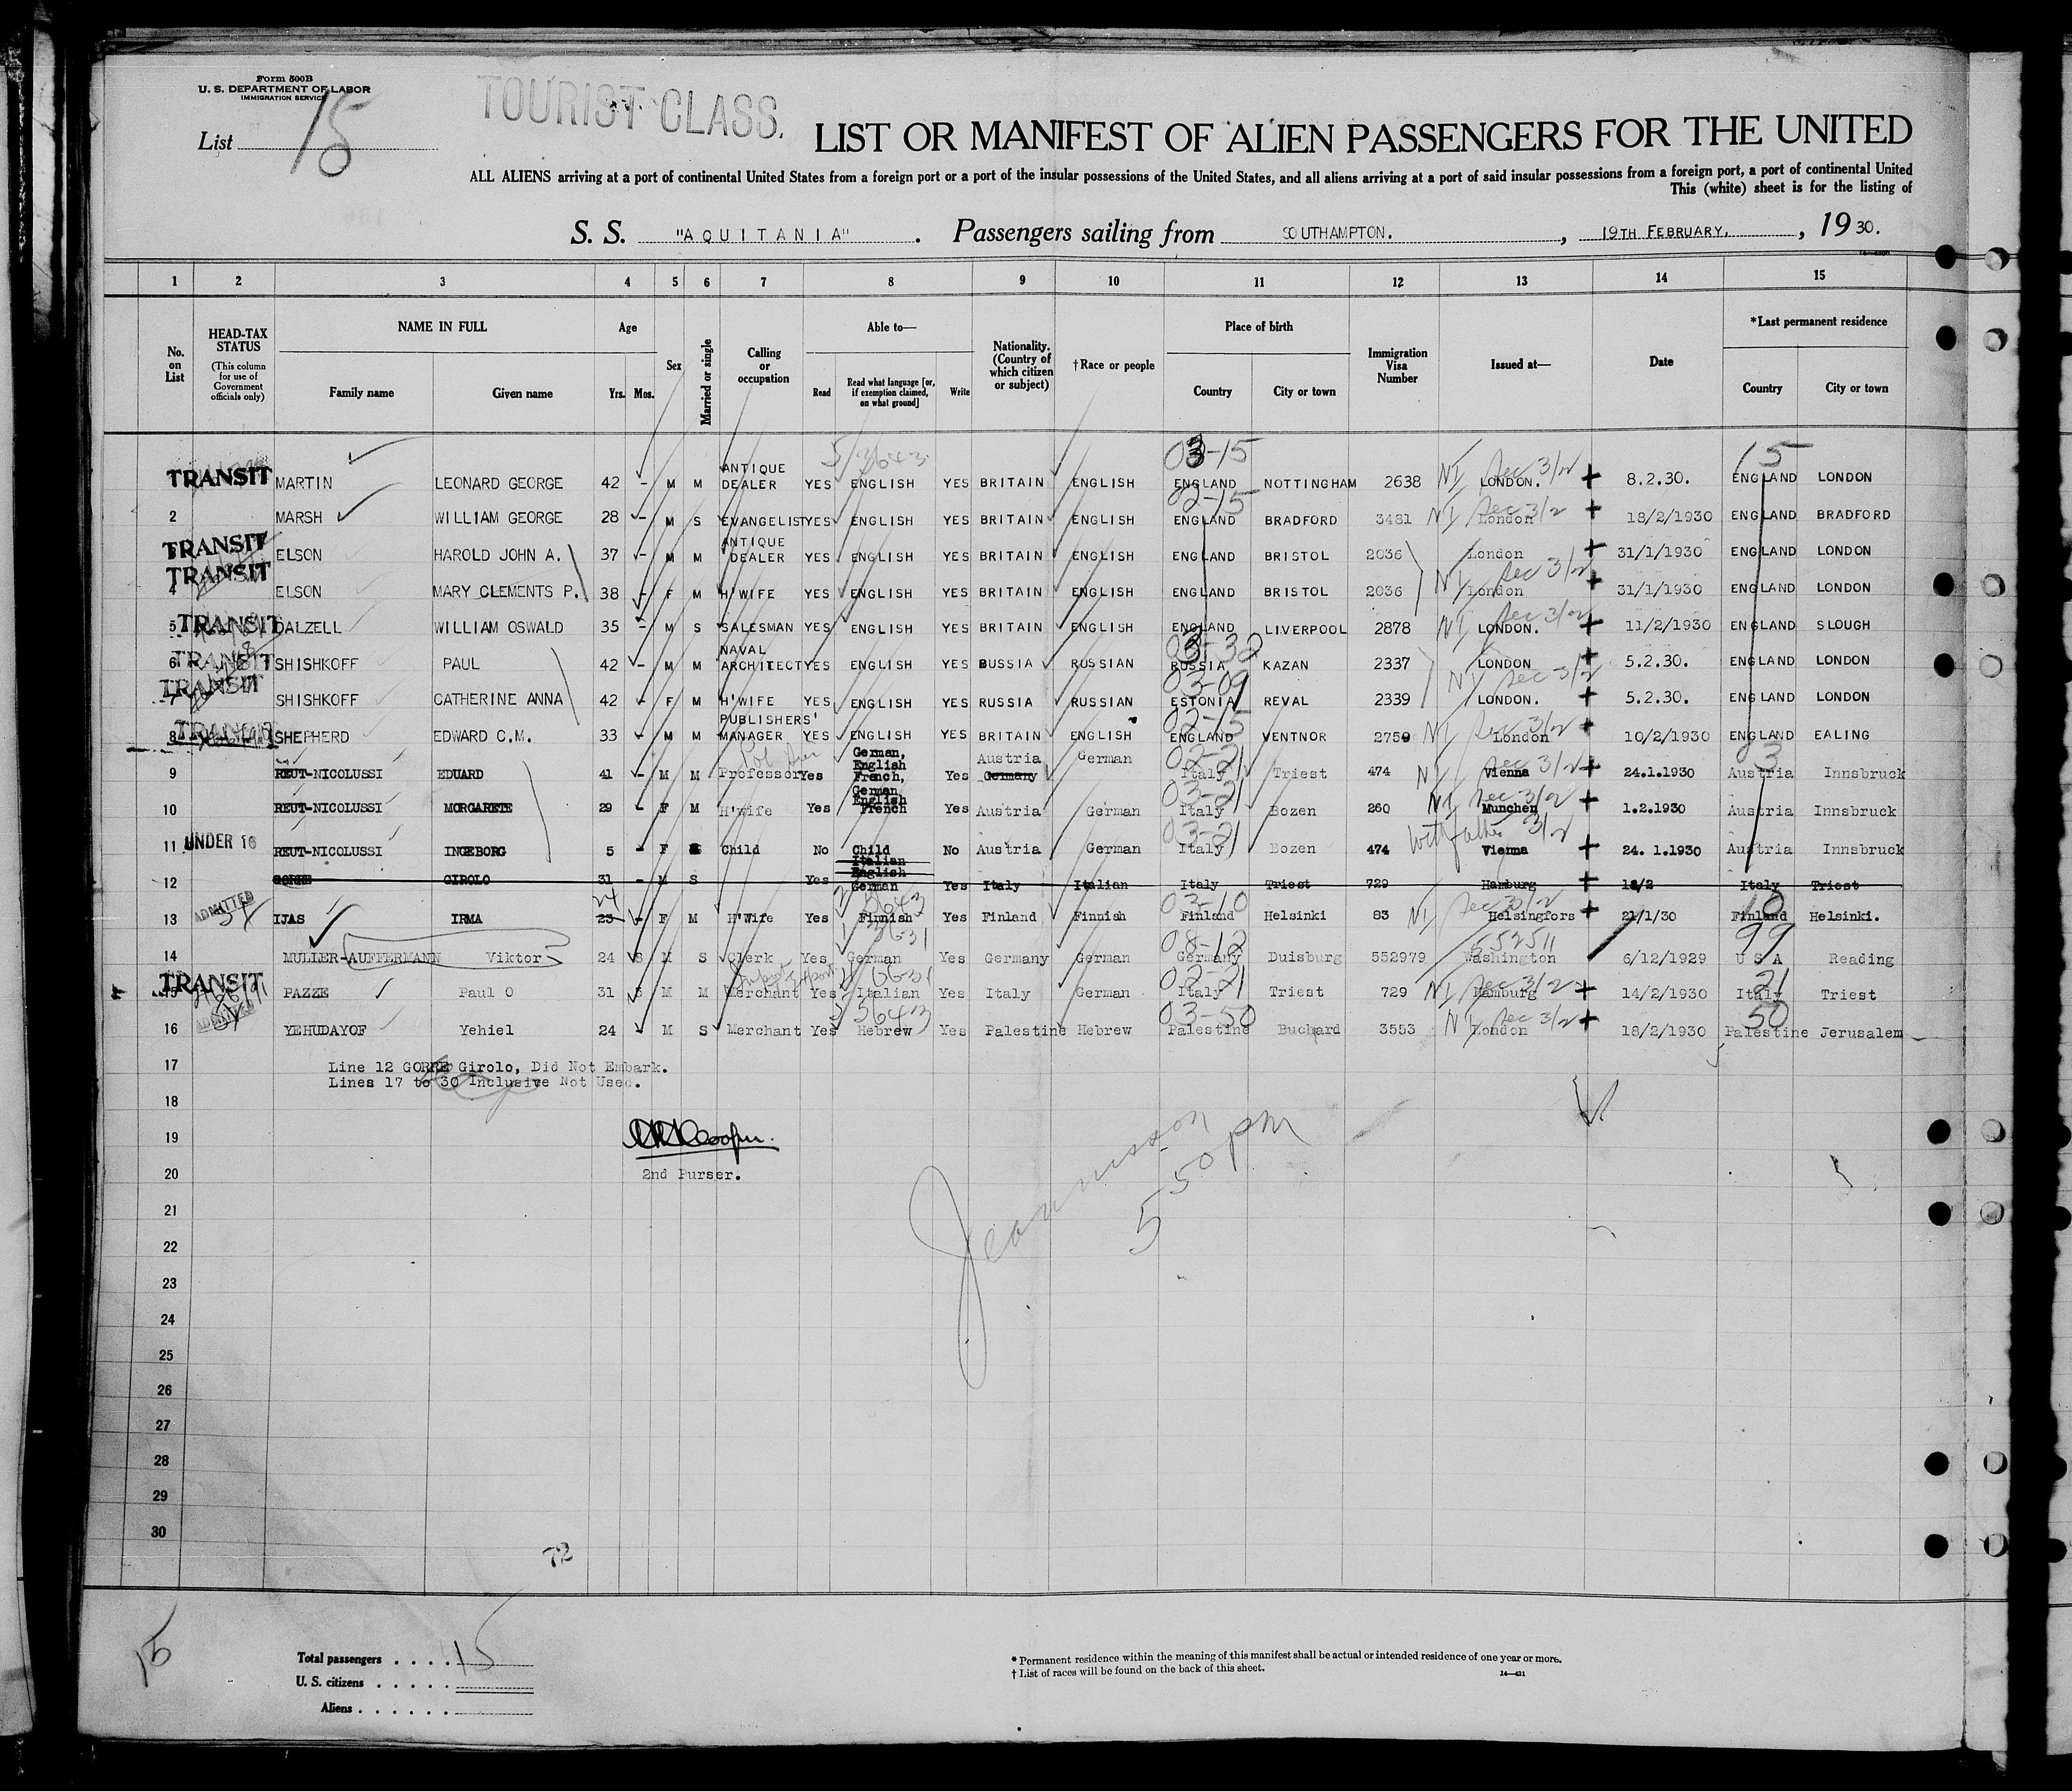 Form 500B
U. S. DEPARTMENT OF LABOR
IMMIGRATION SERVICE
TOURIST CLASS.
List 15
LIST OR MANIFEST OF ALIEN PASSENGERS FOR THE UNITED
ALL ALIENS arriving at a port of continental United States from a foreign port or a port of the insular possessions of the United States, and all aliens arriving at a port of said insular possessions from a foreign port, a port of continental United
This (white) sheet is for the listing of
S. S. "AQUITANIA". Passengers sailing from SOUTHAMPTON., 19TH FEBRUARY., 1930.
1 2 3 4 5 6 7 8 9 10 11 12 13 14 15
No. on List
HEAD-TAX STATUS (This column for use of Government officials only)
NAME IN FULL Family name Given name
Age Yrs. Mos.
Sex
Married or single
Calling or occupation
Able to— Read Read what language [or, if exemption claimed, on what ground] Write
Nationality. (Country of which citizen or subject)
†Race or people
Place of birth Country City or town
Immigration Visa Number
Issued at—
Date
*Last permanent residence Country City or town
5/3643 03-15 15
TRANSIT MARTIN LEONARD GEORGE 42 - M M ANTIQUE DEALER YES ENGLISH YES BRITAIN ENGLISH ENGLAND NOTTINGHAM 2638 NI Sec 3/2 LONDON. 8.2.30. ENGLAND LONDON
02-15
2 MARSH WILLIAM GEORGE 28 - M S EVANGELIST YES ENGLISH YES BRITAIN ENGLISH ENGLAND BRADFORD 3481 NI Sec 3/2 London 18/2/1930 ENGLAND BRADFORD
TRANSIT ELSON HAROLD JOHN A. 37 - M M ANTIQUE DEALER YES ENGLISH YES BRITAIN ENGLISH ENGLAND BRISTOL 2036 London 31/1/1930 ENGLAND LONDON
TRANSIT 4 ELSON MARY CLEMENTS P. 38 - F M H'WIFE YES ENGLISH YES BRITAIN ENGLISH ENGLAND BRISTOL 2036 NI Sec 3/2 London 31/1/1930 ENGLAND LONDON
5 TRANSIT DALZELL WILLIAM OSWALD 35 - M S SALESMAN YES ENGLISH YES BRITAIN ENGLISH ENGLAND LIVERPOOL 2878 NI Sec 3/2 LONDON. 11/2/1930 ENGLAND SLOUGH
03-32
6 TRANSIT SHISHKOFF PAUL 42 - M M NAVAL ARCHITECT YES ENGLISH YES RUSSIA RUSSIAN RUSSIA KAZAN 2337 LONDON 5.2.30. ENGLAND LONDON
03-09
7 TRANSIT SHISHKOFF CATHERINE ANNA 42 - F M H'WIFE YES ENGLISH YES RUSSIA RUSSIAN ESTONIA REVAL 2339 NI Sec 3/2 LONDON. 5.2.30. ENGLAND LONDON
02-15
8 TRANSIT SHEPHERD EDWARD C.M. 33 - M M PUBLISHERS' MANAGER YES ENGLISH YES BRITAIN ENGLISH ENGLAND VENTNOR 2759 NI Sec 3/2 London 10/2/1930 ENGLAND EALING
02-21 03
9 REUT-NICOLUSSI EDUARD 41 - M M Professor Yes German, English French, Yes Austria Germany German Italy Triest 474 NI Sec 3/2 Vienna 24.1.1930 Austria Innsbruck
03-21
10 REUT-NICOLUSSI MORGARETE 29 - F M H'wife Yes German English French Yes Austria German Italy Bozen 260 NI Sec 3/2 Munchen 1.2.1930 Austria Innsbruck
03-21
11 UNDER 16 REUT-NICOLUSSI INGEBORG 5 - F S Child No Child No Austria German Italy Bozen 474 with father 3/2 Vienna 24. 1.1930 Austria Innsbruck
12 GORRE GIROLO 31 - M S Yes Italian English German Yes Italy Italian Italy Triest 729 Hamburg 14/2 Italy Triest
24 03-10 10
ADMITTED 13 IJAS IRMA 23 - F M H'Wife Yes Finnish Yes Finland Finnish Finland Helsinki 83 NI Sec 3/2 Helsingfors 21/1/30 Finland Helsinki.
3631 08-12 55251 99
14 MULLER-AUFFERMANN Viktor 24 S M S Clerk Yes German Yes Germany German Germany Duisburg 552979 Washington 6/12/1929 U S A Reading
Import Export 02-21 21
TRANSIT 15 PAZZE Paul O 31 S M M Merchant Yes Italian Yes Italy German Italy Triest 729 NI Sec 3/2 Hamburg 14/2/1930 Italy Triest
03-50 50
ADMITTED 16 YEHUDAYOF Yehiel 24 M S Merchant Yes Hebrew Yes Palestine Hebrew Palestine Buchard 3553 NI Sec 3/2 London 18/2/1930 Palestine Jerusalem
17 Line 12 GORRE Girolo, Did Not Embark.
Lines 17 to 30 Inclusive Not Used.
18
19
20 2nd Purser.
5 50 pm
21
22
23
24
25
26
27
28
29
30
72
15
Total passengers . . . . 15
U. S. citizens . . . . .
Aliens . . . . . .
* Permanent residence within the meaning of this manifest shall be actual or intended residence of one year or more.
† List of races will be found on the back of this sheet.
14—431